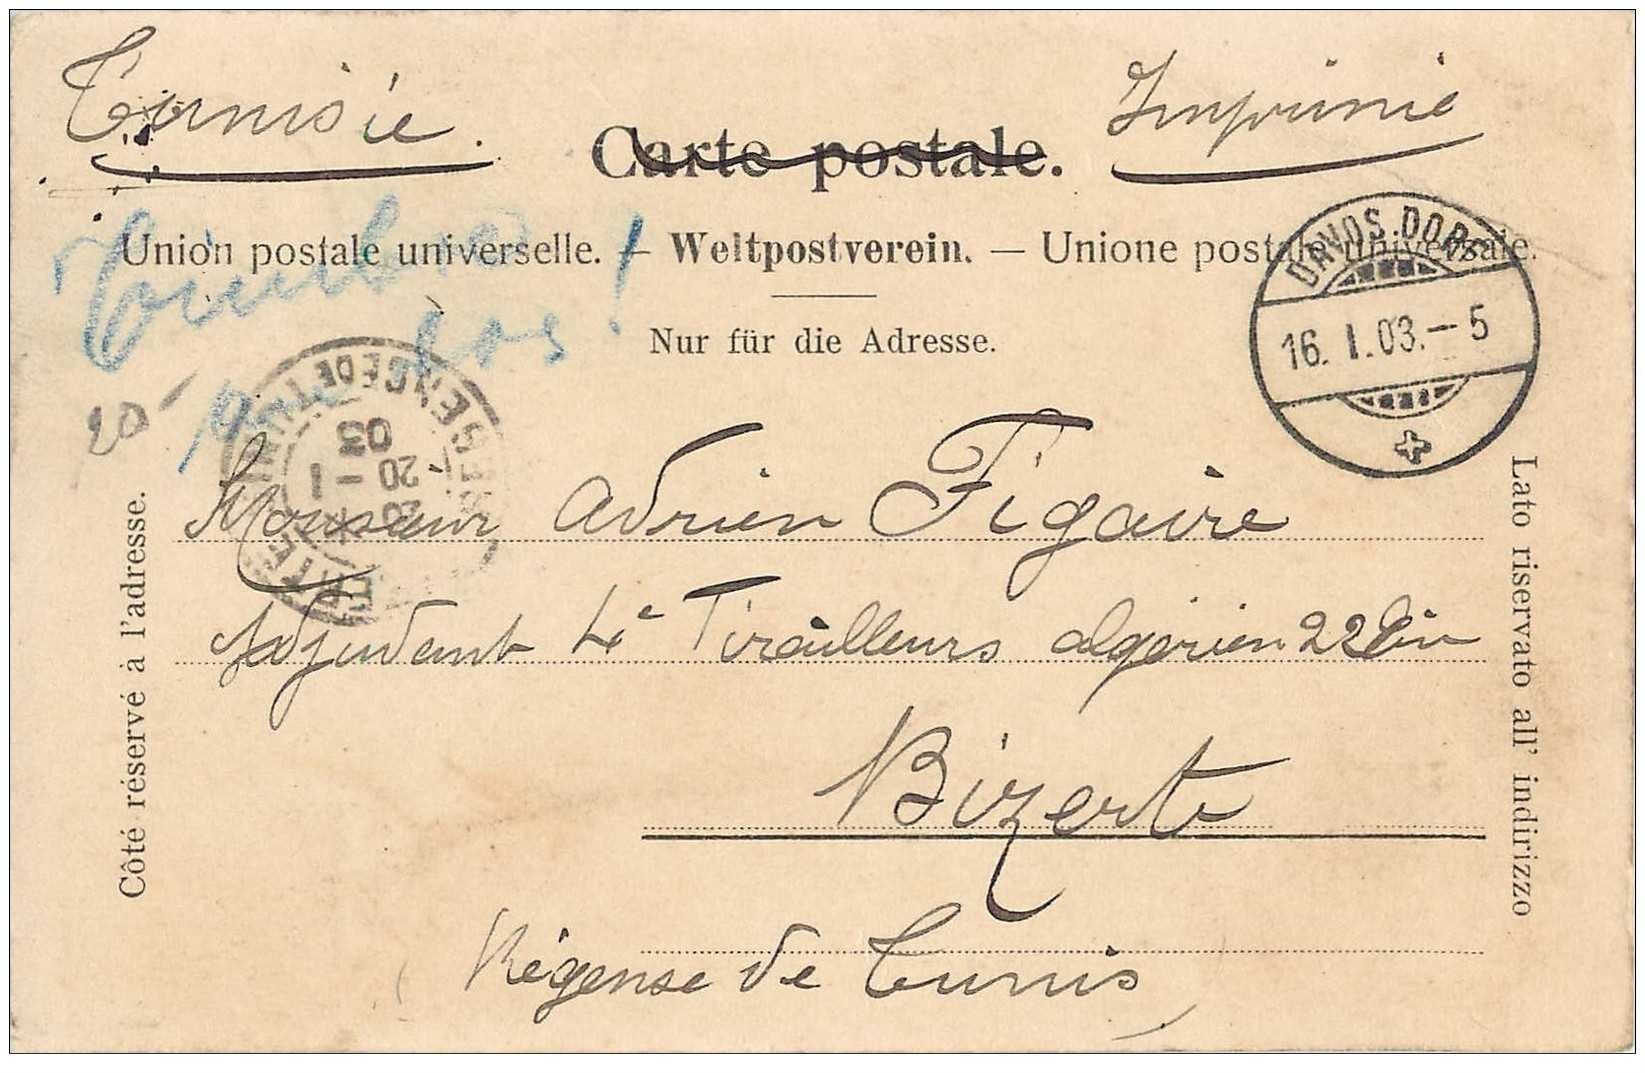 Tunisie. Imprimé
Carte postale.
Union postale universelle. — Weltpostverein. — Unione postale universale.
Timbre
pas !
Nur für die Adresse.
DAVOS-DORF
16. I. 03. – 5
20
03
20 – 1
Monsieur Adrien Figaire
Adjudant 4e Tirailleurs algérien 22
Bizerte
(Régense de Tunis)
Côté réservé à l'adresse.
Lato riservato all' indirizzo